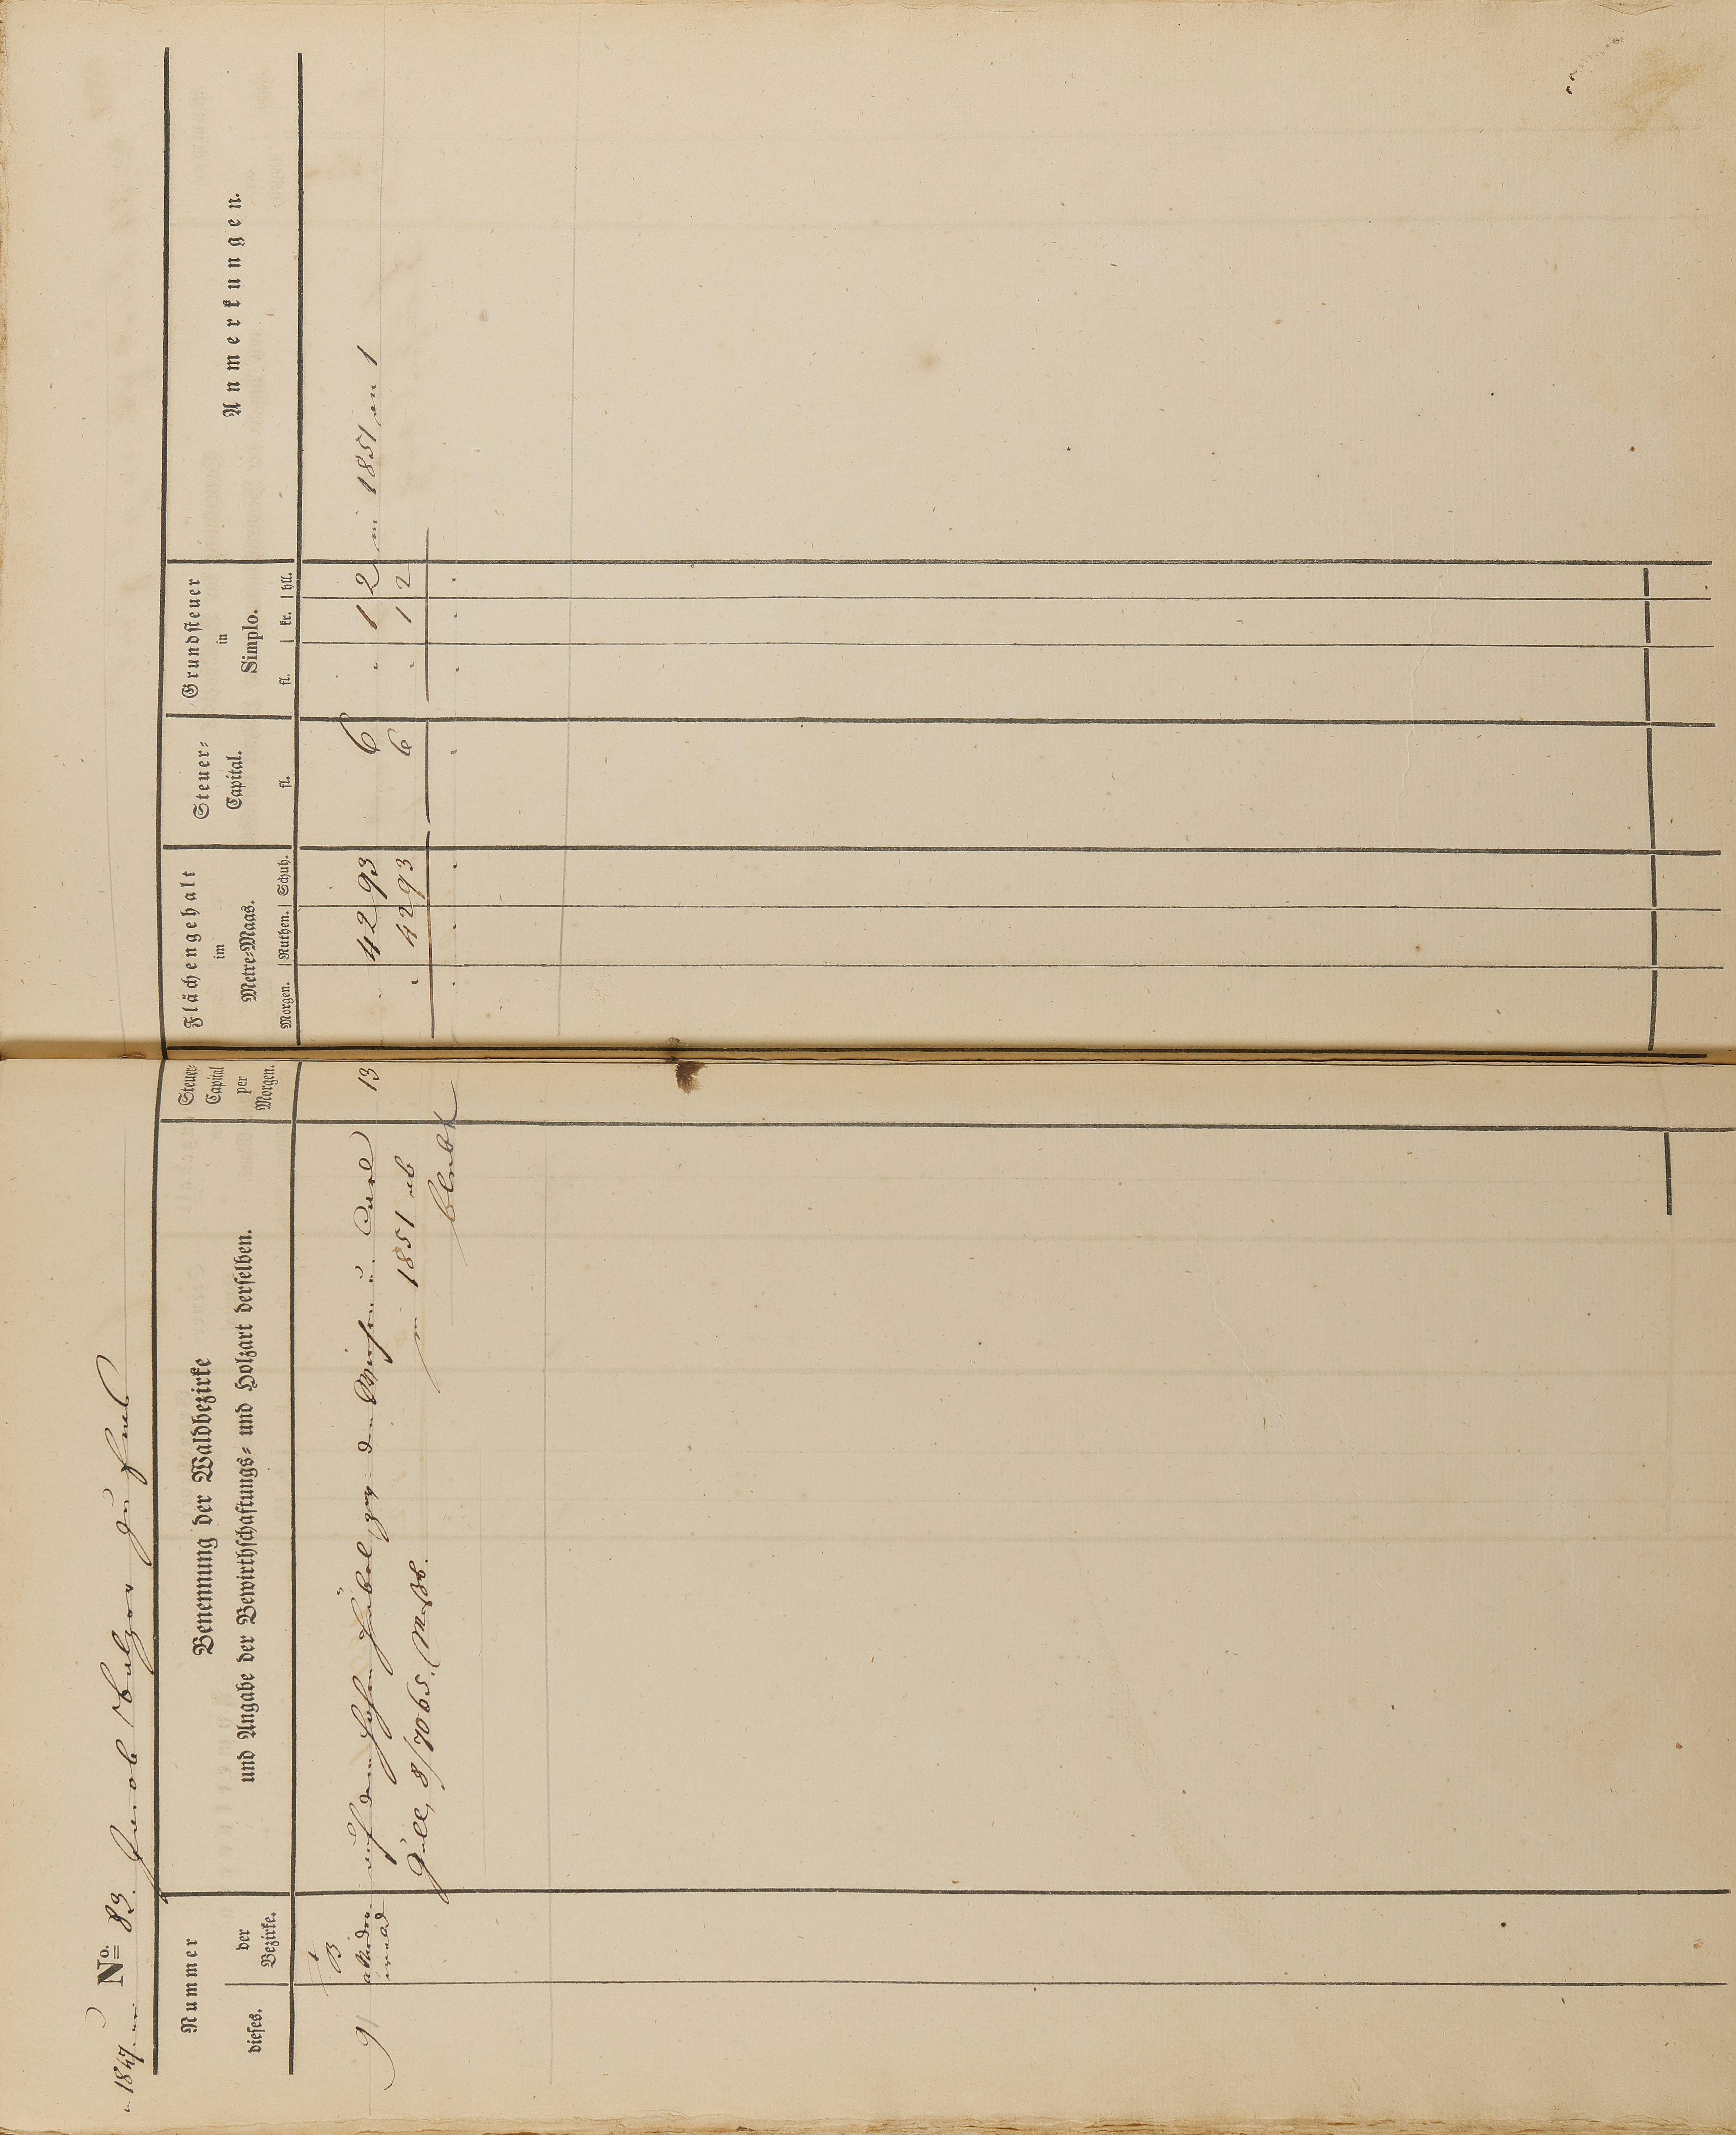 1847 No. 83. Jacob Balzer zu
Nummer
dieses.
der
Bezirke.
Benennung der Waldbezirke
und Angabe der Bewirthschaftungs- und Holzart derselben.
Steuer-
Capital
per
Morgen.
Flächengehalt
im
Metre-Maas.
Morgen. Ruthen. Schuh.
Steuer-
Capital.
fl.
Grundsteuer
in
Simplo.
fl. kr. hll.
Anmerkungen.
91 auf dem hohen zwg den u. Carl 13 42 93 6 1 2 in 1851 an 1
8/7065. in 1851 ab 42 93 6 1 2
bleibt